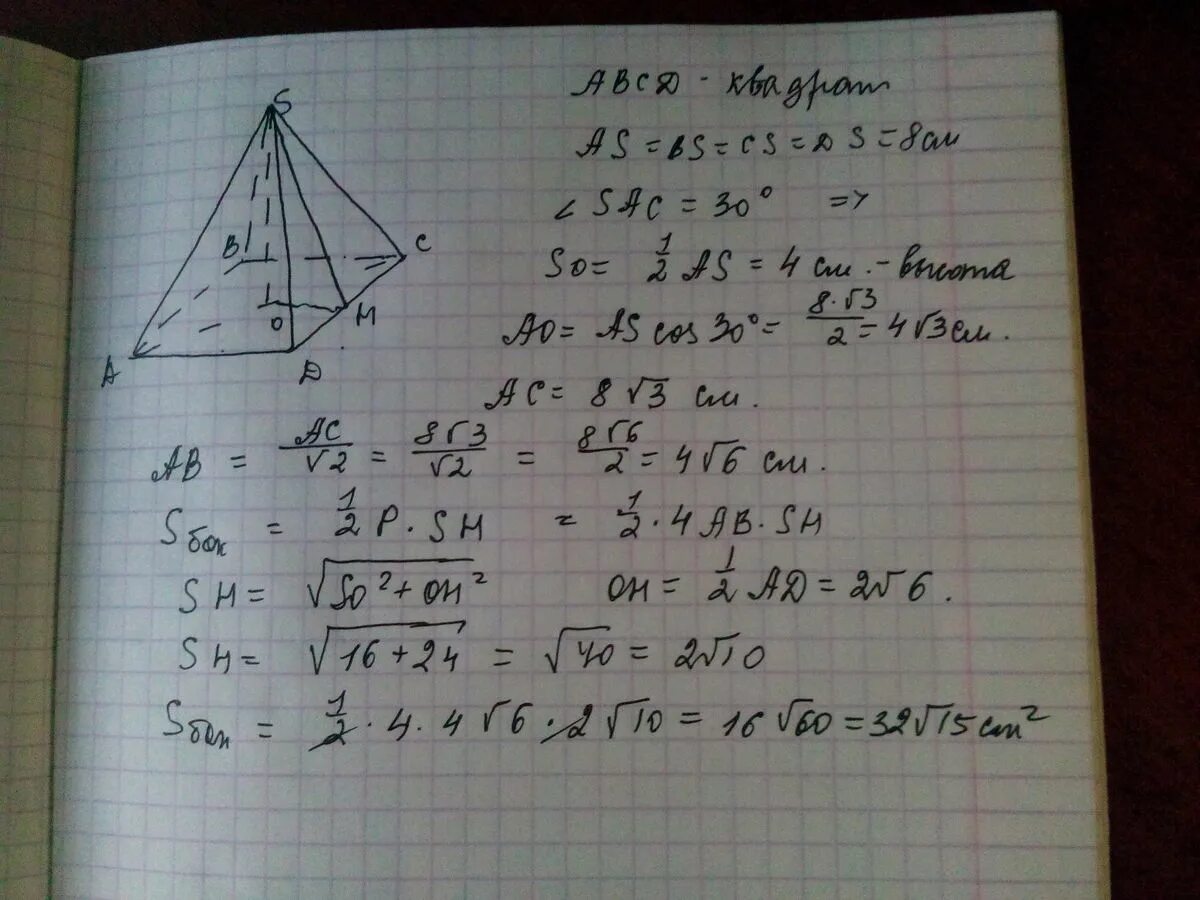 S
B
C
O
H
A
D
ABCD - квадрат
AS = BS = CS = DS = 8 см
∠ SAC = 30° =>
SO = 1/2 AS = 4 см. - высота
AO = AS cos 30° = 8·√3/2 = 4√3 см.
AC = 8√3 см.
AB = AC/√2 = 8√3/√2 = 8√6/2 = 4√6 см.
Sбок = 1/2 P · SH = 1/2 · 4 AB · SH
SH = √(SO² + OH²) OH = 1/2 AD = 2√6.
SH = √(16 + 24) = √40 = 2√10
Sбок = 1/2 · 4 · 4√6 · 2√10 = 16√60 = 32√15 см²